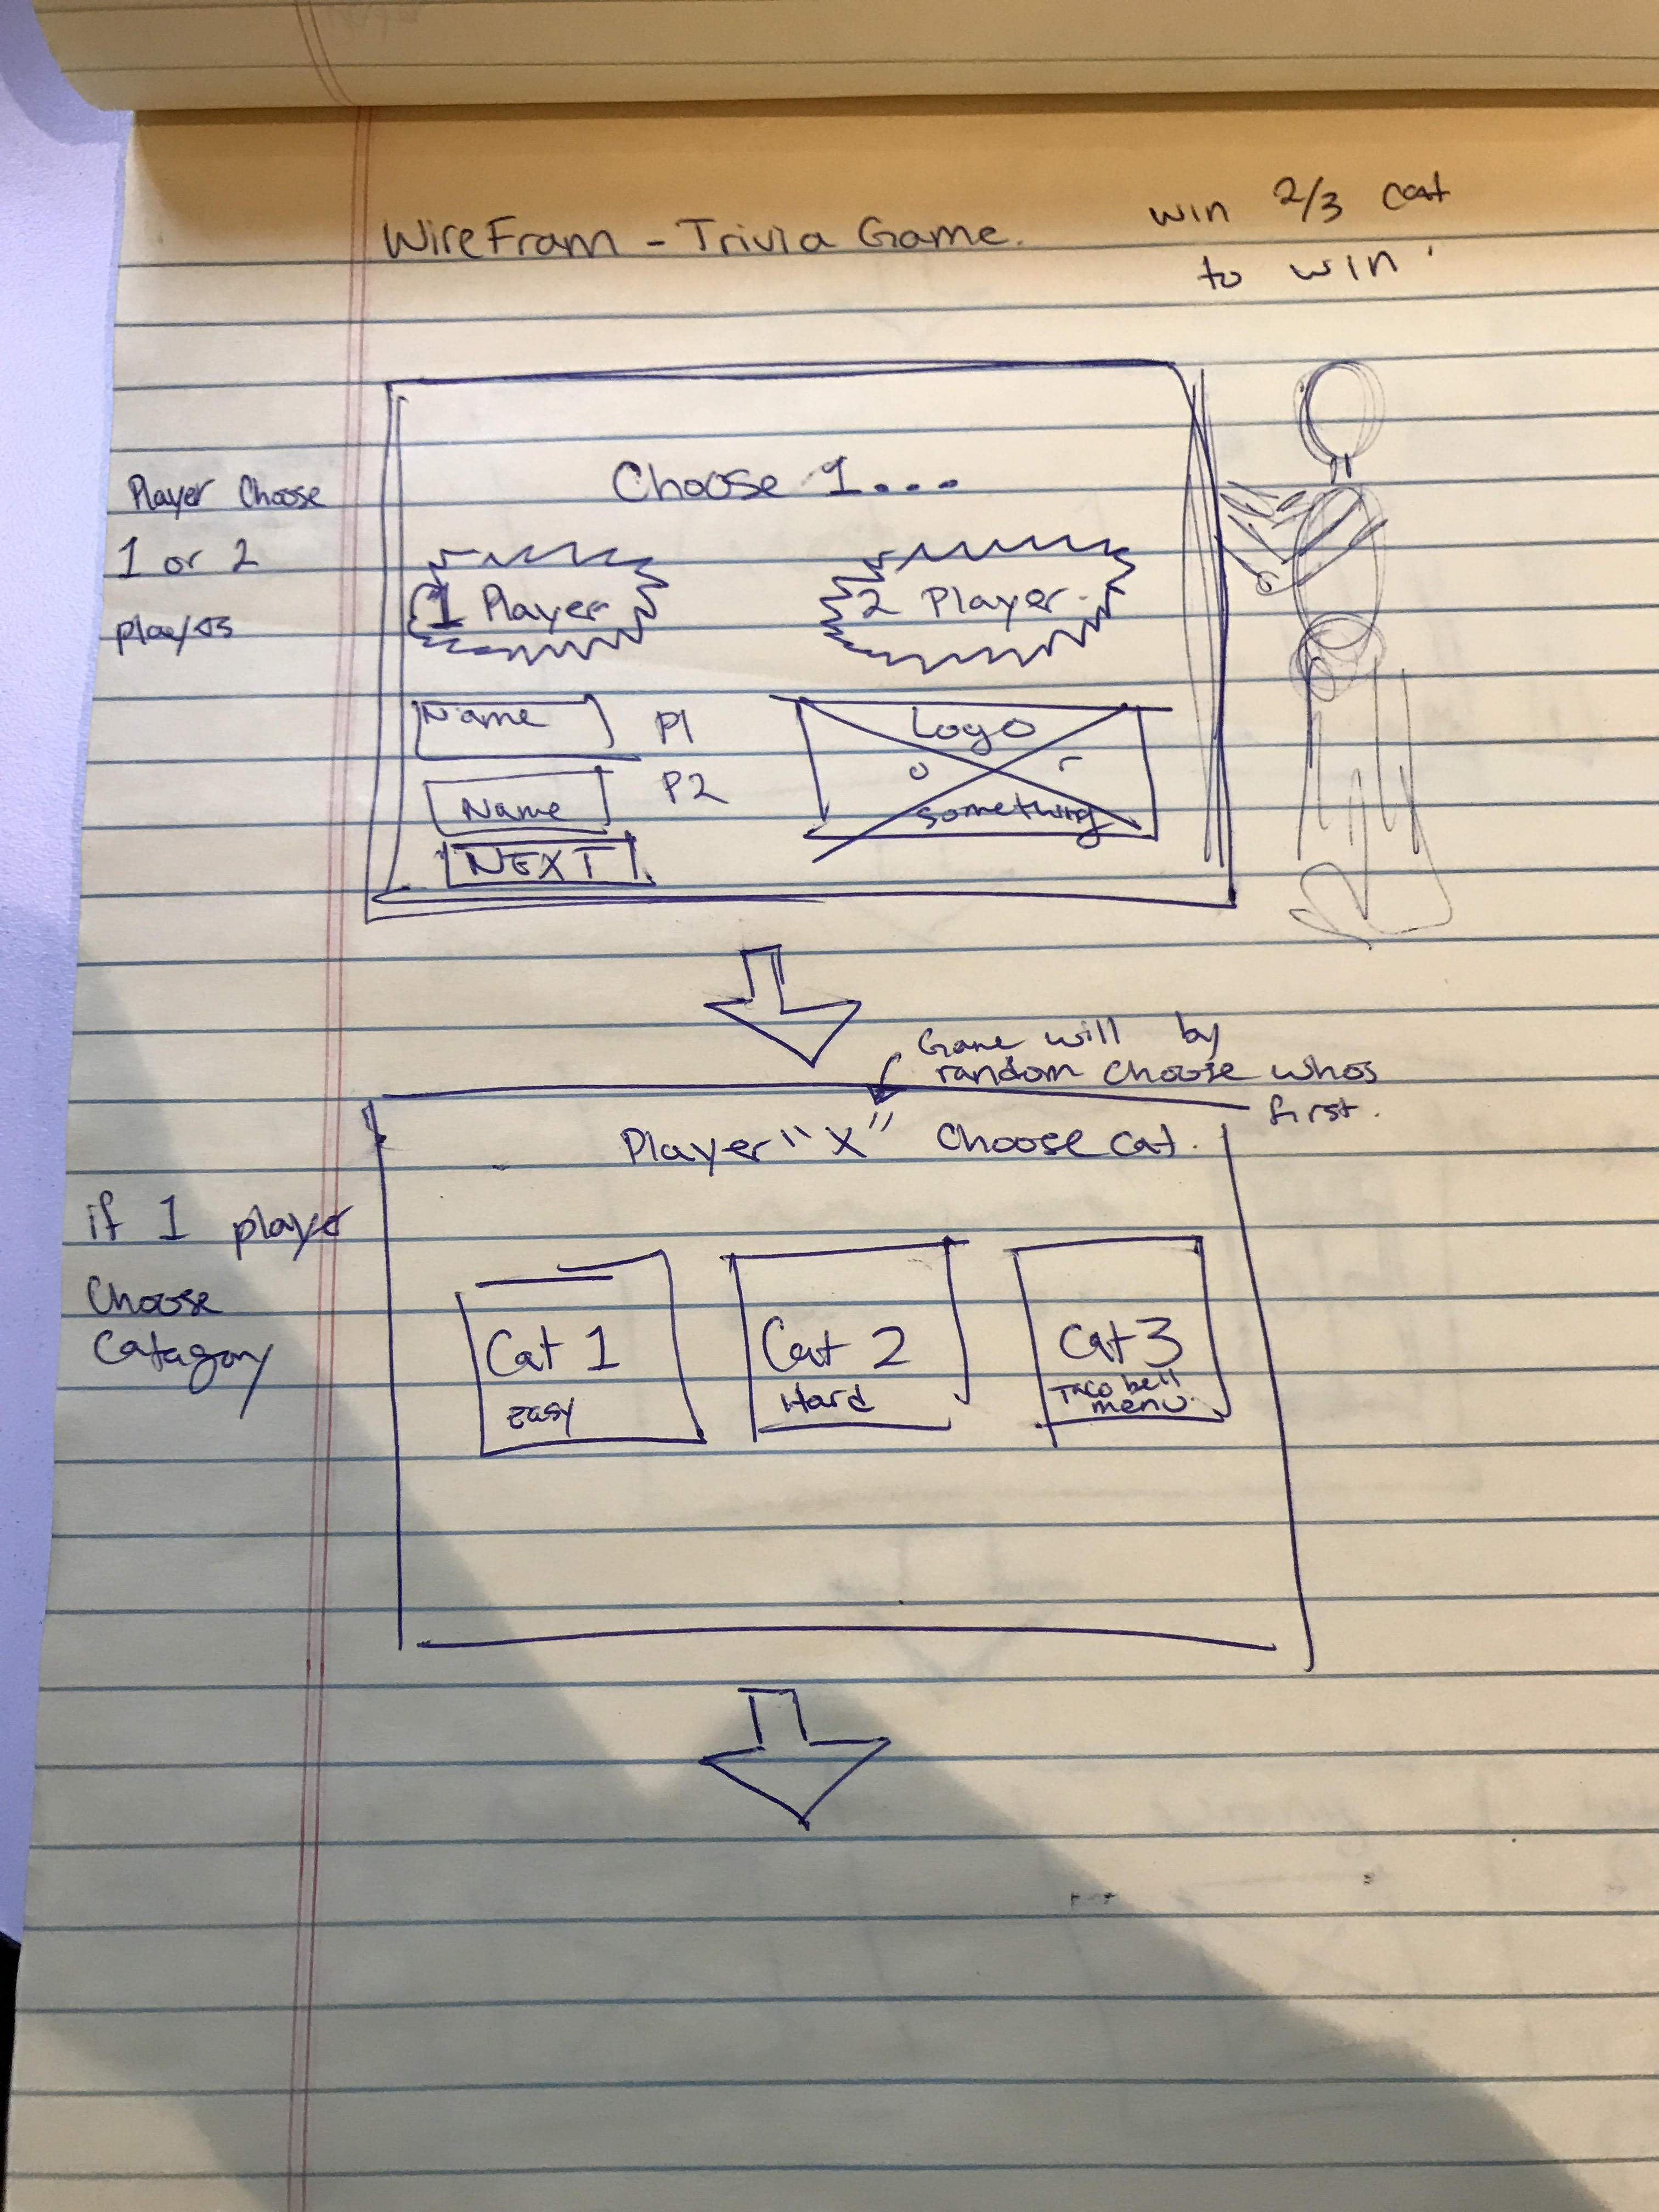 WireFram - Trivia Game.
win 2/3 cat
to win
Player Choose
1 or 2
Choose 1...
1 Player
2 Player.
Name P1
Name P2
NEXT
Logo
or
something
Game will by
random choose whos
first.
Player "X" Choose cat.
if 1 player
Choose
Catagory
Cat 1
Easy
Cat 2
Hard
Cat 3
Taco bell
menu